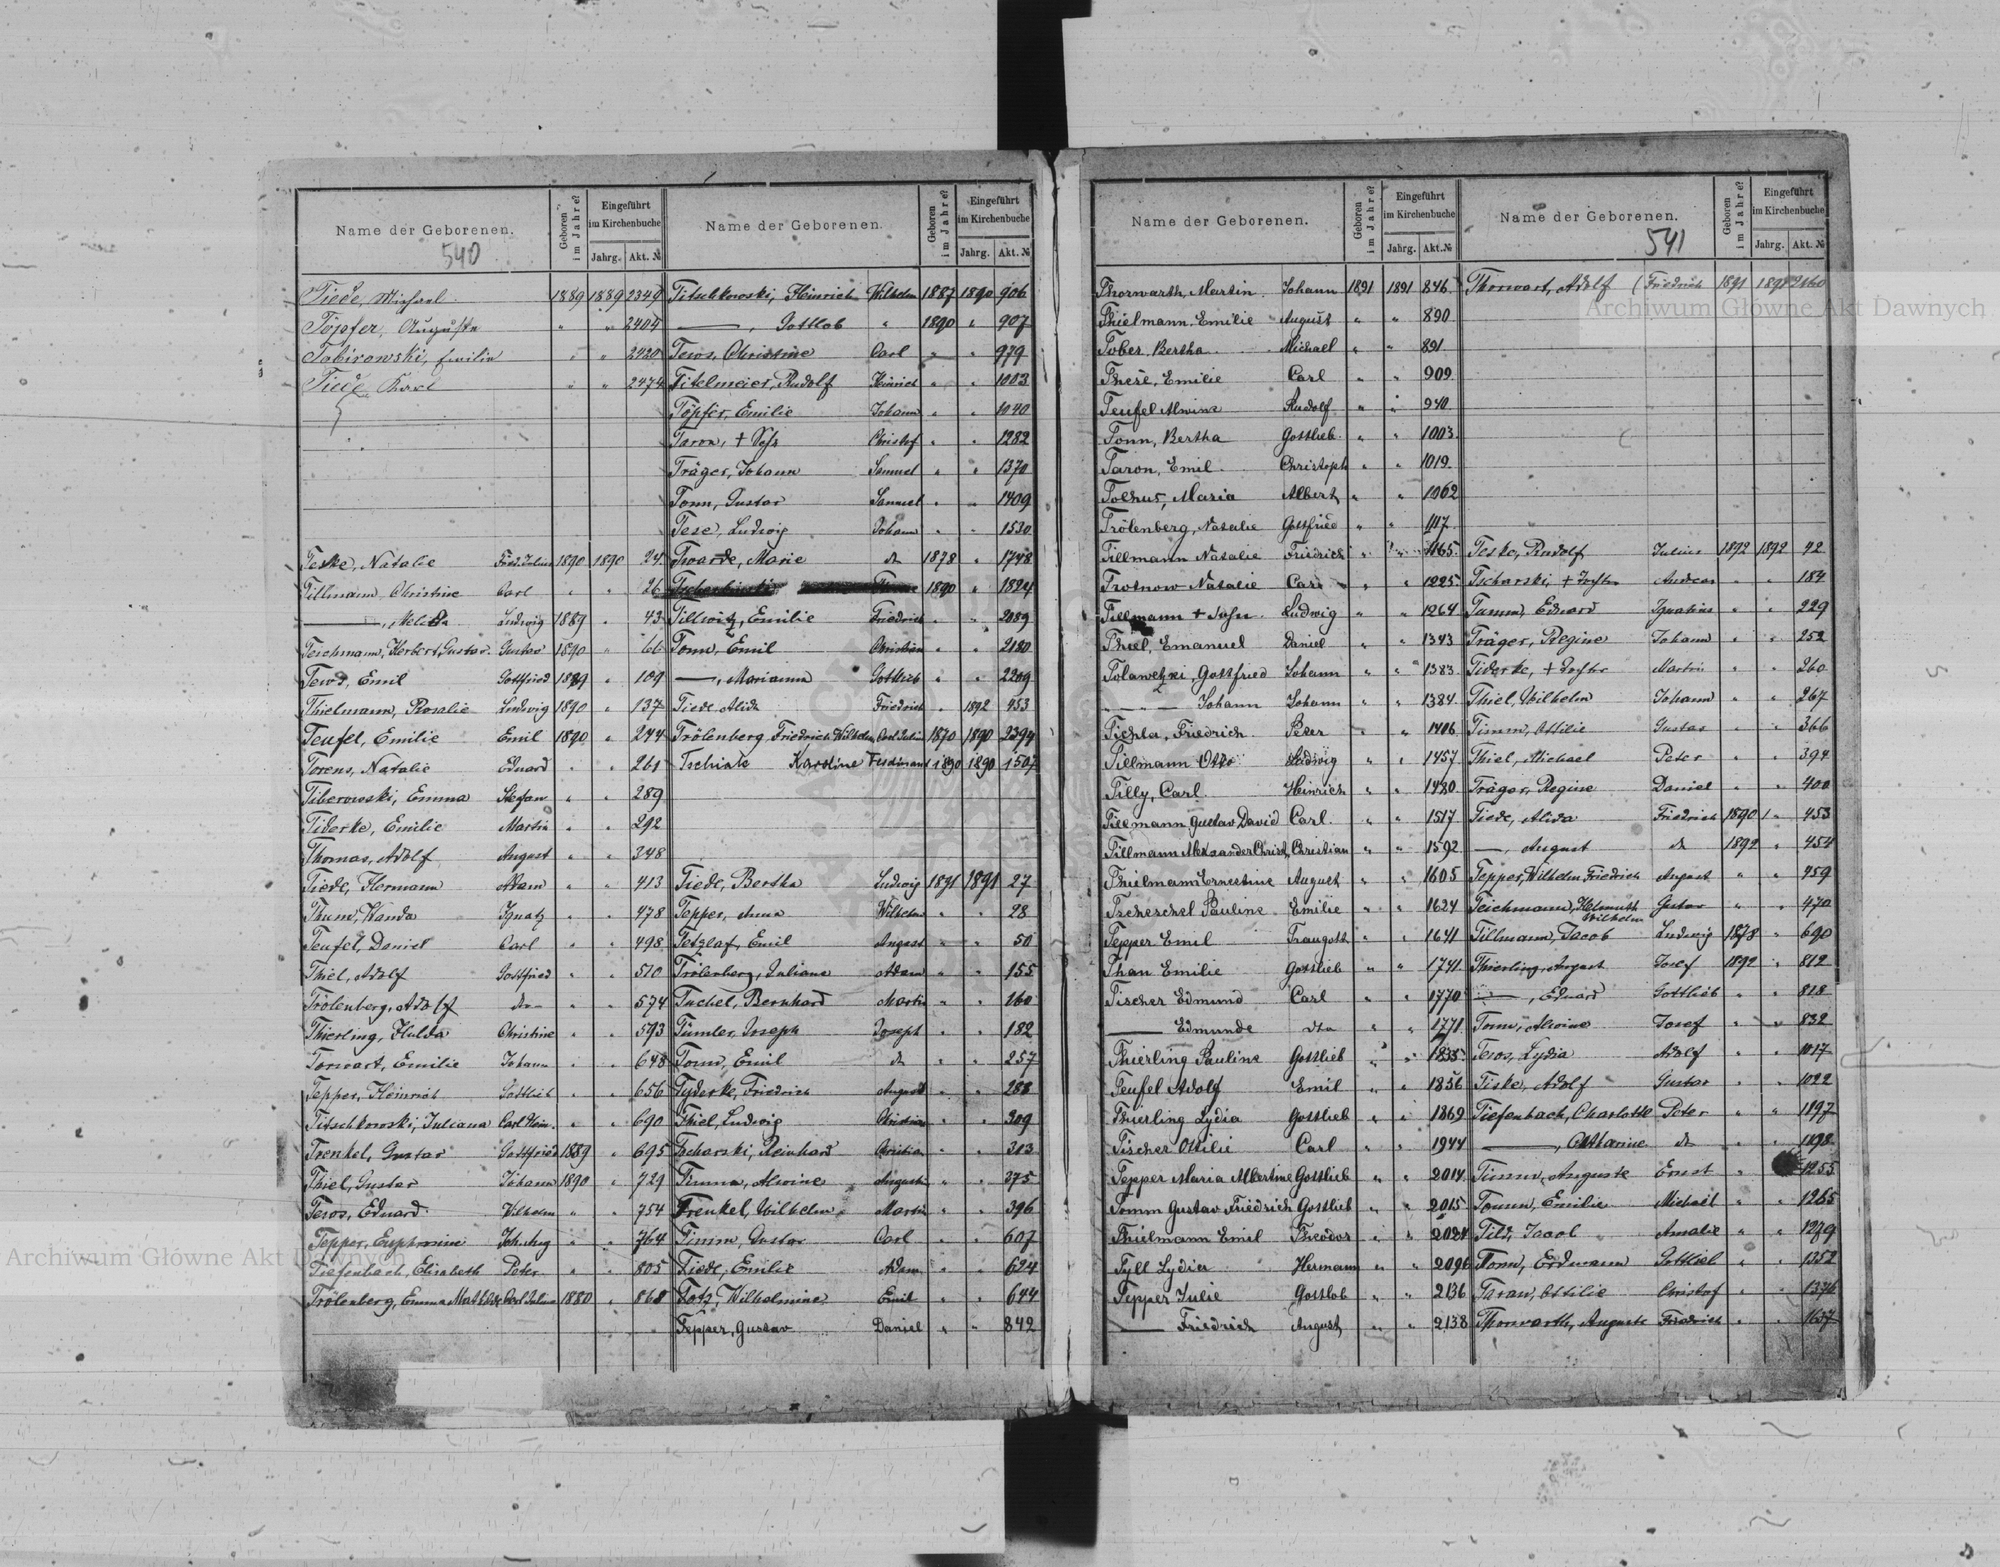 Name der Geborenen.
Geboren im Jahre?
Eingeführt im Kirchenbuche
Jahrg. Akt. №
540
Tiede, Michael 1889 1889 2349
Töpfer, Auguste " " 2404
Tobirowski, Emilie " " 2420
Tiede Karl " " 2474
Teske, Natalie Fried. Julius 1890 1890 24
Tillmann, Christine Carl " " 26
———, Melida Ludwig 1889 " 43
Teichmann, Herbert, Gustav Gustav 1890 " 66
Tews, Emil Gottfried 1889 " 109
Thielmann, Rosalie Ludwig 1890 " 137
Teufel, Emilie Emil 1890 " 244
Torens, Natalie Eduard " " 261
Tiberowski, Emma Stefan " " 289
Tiderke, Emilie Martin " " 292
Thomas, Adolf August " " 348
Tiede, Hermann Adam " " 413
Thum, Wanda Ignatz " " 478
Teufel, Daniel Carl " " 498
Thiel, Adolf Gottfried " " 510
Trölenberg, Adolf dto " " 574
Thierling, Hulda Christine " " 593
Torwart, Emilie Johann " " 648
Tepper, Heinrich Gottlieb " " 656
Titschkowski, Juliana Carl Hein. " " 690
Trenkel, Gustav Gottfried 1889 " 695
Thiel, Gustav Johann 1890 " 729
Tews, Eduard Wilhelm " " 754
Tepper, Euphemine Joh. Aug " " 764
Tiefenbach, Elisabeth Peter " " 805
Trölenberg, Emma Mathilde Carl Julius 1880 " 868
Name der Geborenen.
Geboren im Jahre?
Eingeführt im Kirchenbuche
Jahrg. Akt. №
Titschkowski, Heinrich Wilhelm 1887 1890 906
———, Gottlob " 1890 " 907
Tews, Christine Carl " " 979
Titelmeier, Rudolf Heinrich " " 1003
Töpfer, Emilie Johann " " 1040
Taron, + Sohn Christof " " 1282
Träger, Johann Samuel " " 1370
Tonn, Gustav Samuel " " 1409
Tese, Ludwig Johann " " 1530
Twarde, Marie do 1878 " 1748
1890 " 1824
Tillwitz, Emilie Friedrich " " 2089
Tonn, Emil Christian " " 2180
———, Marianna Gottlieb " " 2209
Tiede Alida Friedrich " 1892 453
Trölenberg, Friedrich Wilhelm Carl Julius 1870 1890 2394
Tschiate Karoline Ferdinand 1890 1890 1507
Tiede, Bertha Ludwig 1891 1891 27
Tepper, Anna Wilhelm " " 28
Tetzlaf, Emil August " " 50
Trölenberg, Juliane Adam " " 155
Tuchel, Bernhard Martin " " 160
Tümler, Joseph Joseph " " 182
Tonn, Emil do " " 257
Tyderke, Friedrich August " " 288
Thiel, Ludwig Christian " " 309
Tscharski, Reinhard Christian " " 303
Timm, Alwine August " " 375
Trenkel, Wilhelm Martin " " 396
Timm, Gustav Carl " " 607
Tiede, Emilie Adam " " 624
Totz, Wilhelmine Emil " " 644
Tepper, Gustav Daniel " " 842
Name der Geborenen.
Geboren im Jahre?
Eingeführt im Kirchenbuche
Jahrg. Akt. №
Thorwarth, Martin Johann 1891 1891 846
Thielmann, Emilie August " " 890
Tober, Bertha Michael " " 891
These, Emilie Carl " " 909
Teufel Alwine Rudolf " " 940
Tonn, Bertha Gottlieb " " 1003
Taron, Emil Christoph " " 1019
Maria Albert " " 1062
Trölenberg, Natalie Gottfried " " 1117
Tillmann Natalie Friedrich " " 1165
Trotnow Natalie Carl " " 1225
Tillmann + Sohn Ludwig " " 1264
Thiel, Emanuel Daniel " " 1343
Gottfried Johann " " 1383
" — Johann Johann " " 1384
Tichla, Friedrich Peter " " 1406
Tillmann Otto Ludwig " " 1457
Tilly, Carl Heinrich " " 1480
Tillmann Gustav David Carl " " 1517
Tillmann Alexander Christ. Christian " " 1592
Thielmann Ernestine August " " 1605
Tscheschel Pauline Emilie " " 1624
Tepper Emil Traugott " " 1641
Than Emilie Gottlieb " " 1741
Tischer Edmund Carl " " 1770
——— Edmunde dto " " 1771
Thierling Pauline Gottlieb " " 1835
Teufel Adolf Emil " " 1856
Thierling Lydia Gottlieb " " 1869
Tischer Ottilie Carl " " 1944
Tepper Maria Albertine Gottlieb " " 2014
Tomm Gustav Friedrich Gottlieb " " 2015
Thielmann Emil Theodor " " 2024
Tyll Lydia Hermann " " 2096
Tepper Julie Gottlob " " 2136
——— Friedrich August " " 2138
Name der Geborenen.
541
Geboren im Jahre?
Eingeführt im Kirchenbuche
Jahrg. Akt. №
Thorwart, Adolf Friedrich 1891 1891 2160
Teske, Rudolf Julius 1892 1892 42
Tscharski, + Tochter Andreas " " 184
Tamm, Eduard Ignatius " " 229
Träger, Regine Johann " " 252
Tiderke, + Tochter Martin " " 260
Thiel, Wilhelm Johann " " 267
Timm, Ottilie Gustav " " 366
Thiel, Michael Peter " " 394
Träger, Regine Daniel " " 400
Tiede, Alida Friedrich 1890 " 453
—, August do 1892 " 454
Tepper, Wilhelm Friedrich August " " 459
Teichmann, Helmuth Wilhelm Gustav " " 470
Tillmann, Jacob Ludwig 1878 " 690
Thierling, August Josef 1892 " 812
———, Eduard Gottlieb " " 818
Tonn, Alwine Josef " " 832
Tews, Lydia Adolf " " 1017
Tiske, Adolf Gustav " " 1022
Tiefenbach, Charlotte Peter " " 1197
———, Catharine do " " 1198
Timm, Auguste Ernst " " 1255
Tomm, Emilie Michael " " 1265
Tilt, Jacob Amalie " " 1279
Tonn, Erdmann Gottlieb " " 1352
Taran, Ottilie Christof " " 1376
Thorwarth, Auguste Friedrich " " 1637
Archiwum Główne Akt Dawnych
Archiwum Główne Akt Dawnych